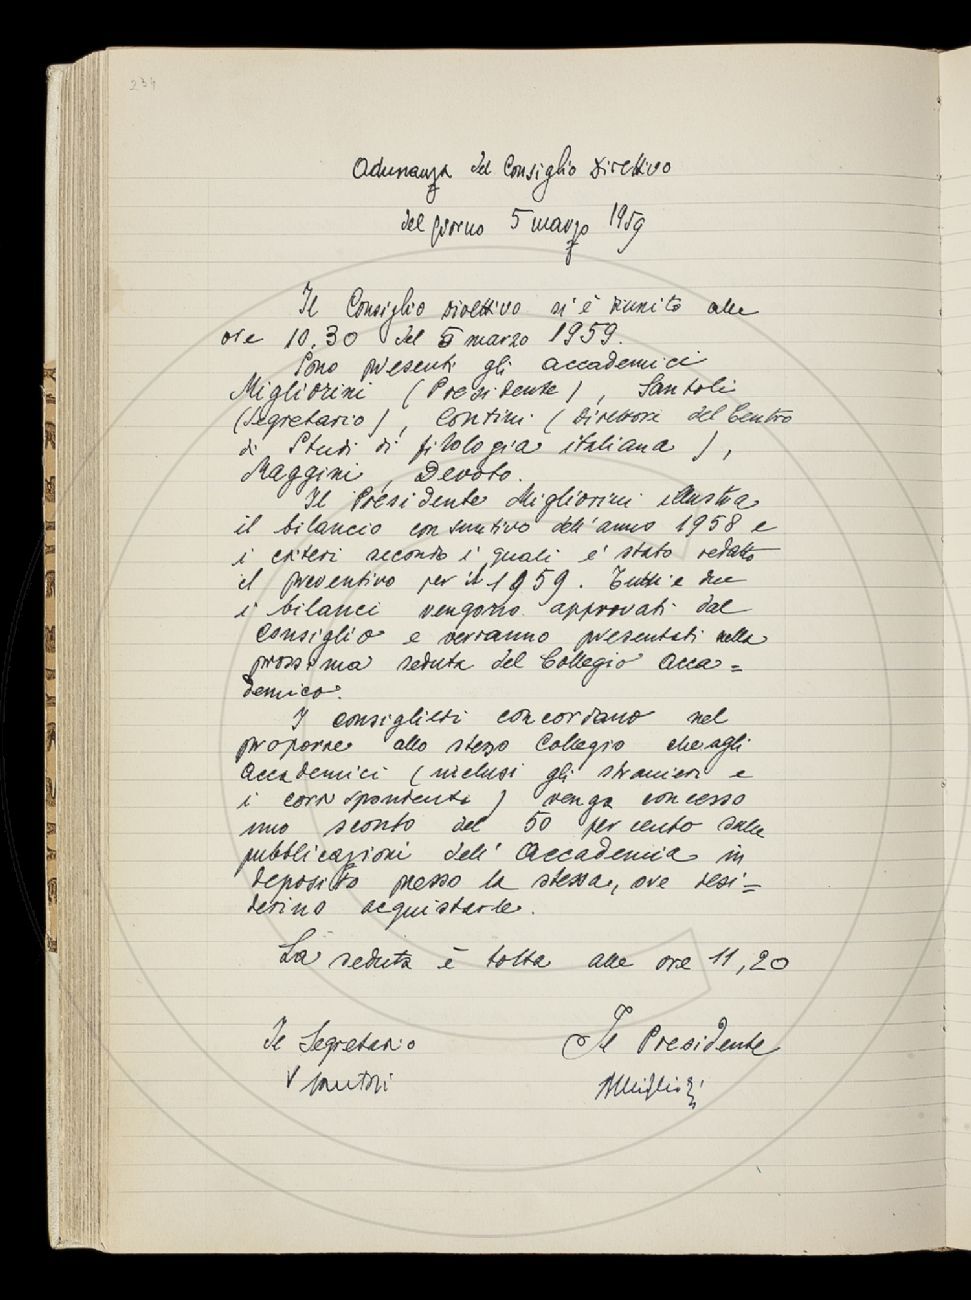 234
Adunanza del Consiglio Direttivo
del giorno 5 marzo 1959
Il Consiglio Direttivo si è riunito alle
ore 10.30 del 5 marzo 1959.
Sono presenti gli accademici
Migliorini (Presidente), Santoli
(Segretario), Contini (Direttore del Centro
di Studi di filologia italiana),
Raggini, Devoto.
Il Presidente Migliorini illustra
il bilancio consuntivo dell'anno 1958 e
i criteri secondo i quali è stato redatto
il preventivo per il 1959. Tutti e due
i bilanci vengono approvati dal
Consiglio e verranno presentati nella
prossima seduta del Collegio Acca=
demico.
I consiglieri concordano nel
proporre allo stesso Collegio che agli
accademici (inclusi gli stranieri e
i corrispondenti) venga concesso
uno sconto del 50 per cento sulle
pubblicazioni dell'Accademia in
deposito presso la stessa, ove desi=
derino acquistarle.
La seduta è tolta alle ore 11,20
Il Segretario Il Presidente
V Santoli BMigliorini